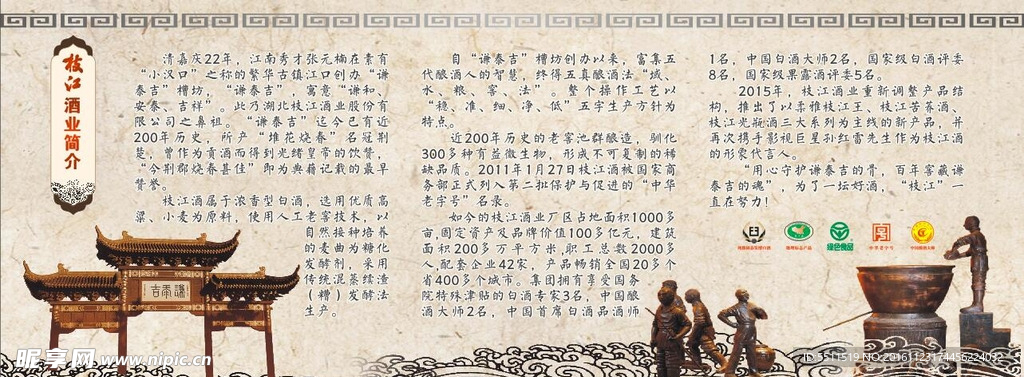 枝江酒业简介
清嘉庆22年，江南秀才张元楠在素有
“小汉口”之称的繁华古镇江口创办“谦
泰吉”槽坊，“谦泰吉”，寓意“谦和、
安泰、吉祥”。此乃湖北枝江酒业股份有
限公司之鼻祖。“谦泰吉”迄今已有近
200年历史，所产“堆花烧春”名冠荆
楚，曾作为贡酒而得到光绪皇帝的饮赞，
“今荆郡烧春甚佳”即为典籍记载的最早
赞誉。
枝江酒属于浓香型白酒，选用优质高
粱、小麦为原料，使用人工老窖技术，以
自然接种培养
的麦曲为糖化
发酵剂，采用
传统混蒸续渣
（糟）发酵法
生产。
自“谦泰吉”槽坊创办以来，富集五
代酿酒人的智慧，终得五真酿酒法“域、
水、粮、窖、法”。整个操作工艺以
“稳、准、细、净、低”五字生产方针为
特点。
近200年历史的老窖池群酿造，驯化
300多种有益微生物，形成不可复制的稀
缺品质。2011年1月27日枝江酒被国家商
务部正式列入第二批保护与促进的“中华
老字号”名录。
如今的枝江酒业厂区占地面积1000多
亩,固定资产及品牌价值100多亿元，建筑
面积200多万平方米,职工总数2000多
人,配套企业42家，产品畅销全国20多个
省400多个城市。集团拥有享受国务
院特殊津贴的白酒专家3名，中国酿
酒大师2名，中国首席白酒品酒师
1名，中国白酒大师2名，国家级白酒评委
8名，国家级果露酒评委5名。
2015年，枝江酒业重新调整产品结
构，推出了以柔雅枝江王、枝江苦荞酒、
枝江光瓶酒三大系列为主线的新产品，并
再次携手影视巨星孙红雷先生作为枝江酒
的形象代言人。
“用心守护谦泰吉的骨，百年窖藏谦
泰吉的魂”，为了一坛好酒，“枝江”一
直在努力！
绿色食品
中华老字号
吉泰谦
昵享网 www.nipic.cn
ID:5511519 NO:20161123174456224032